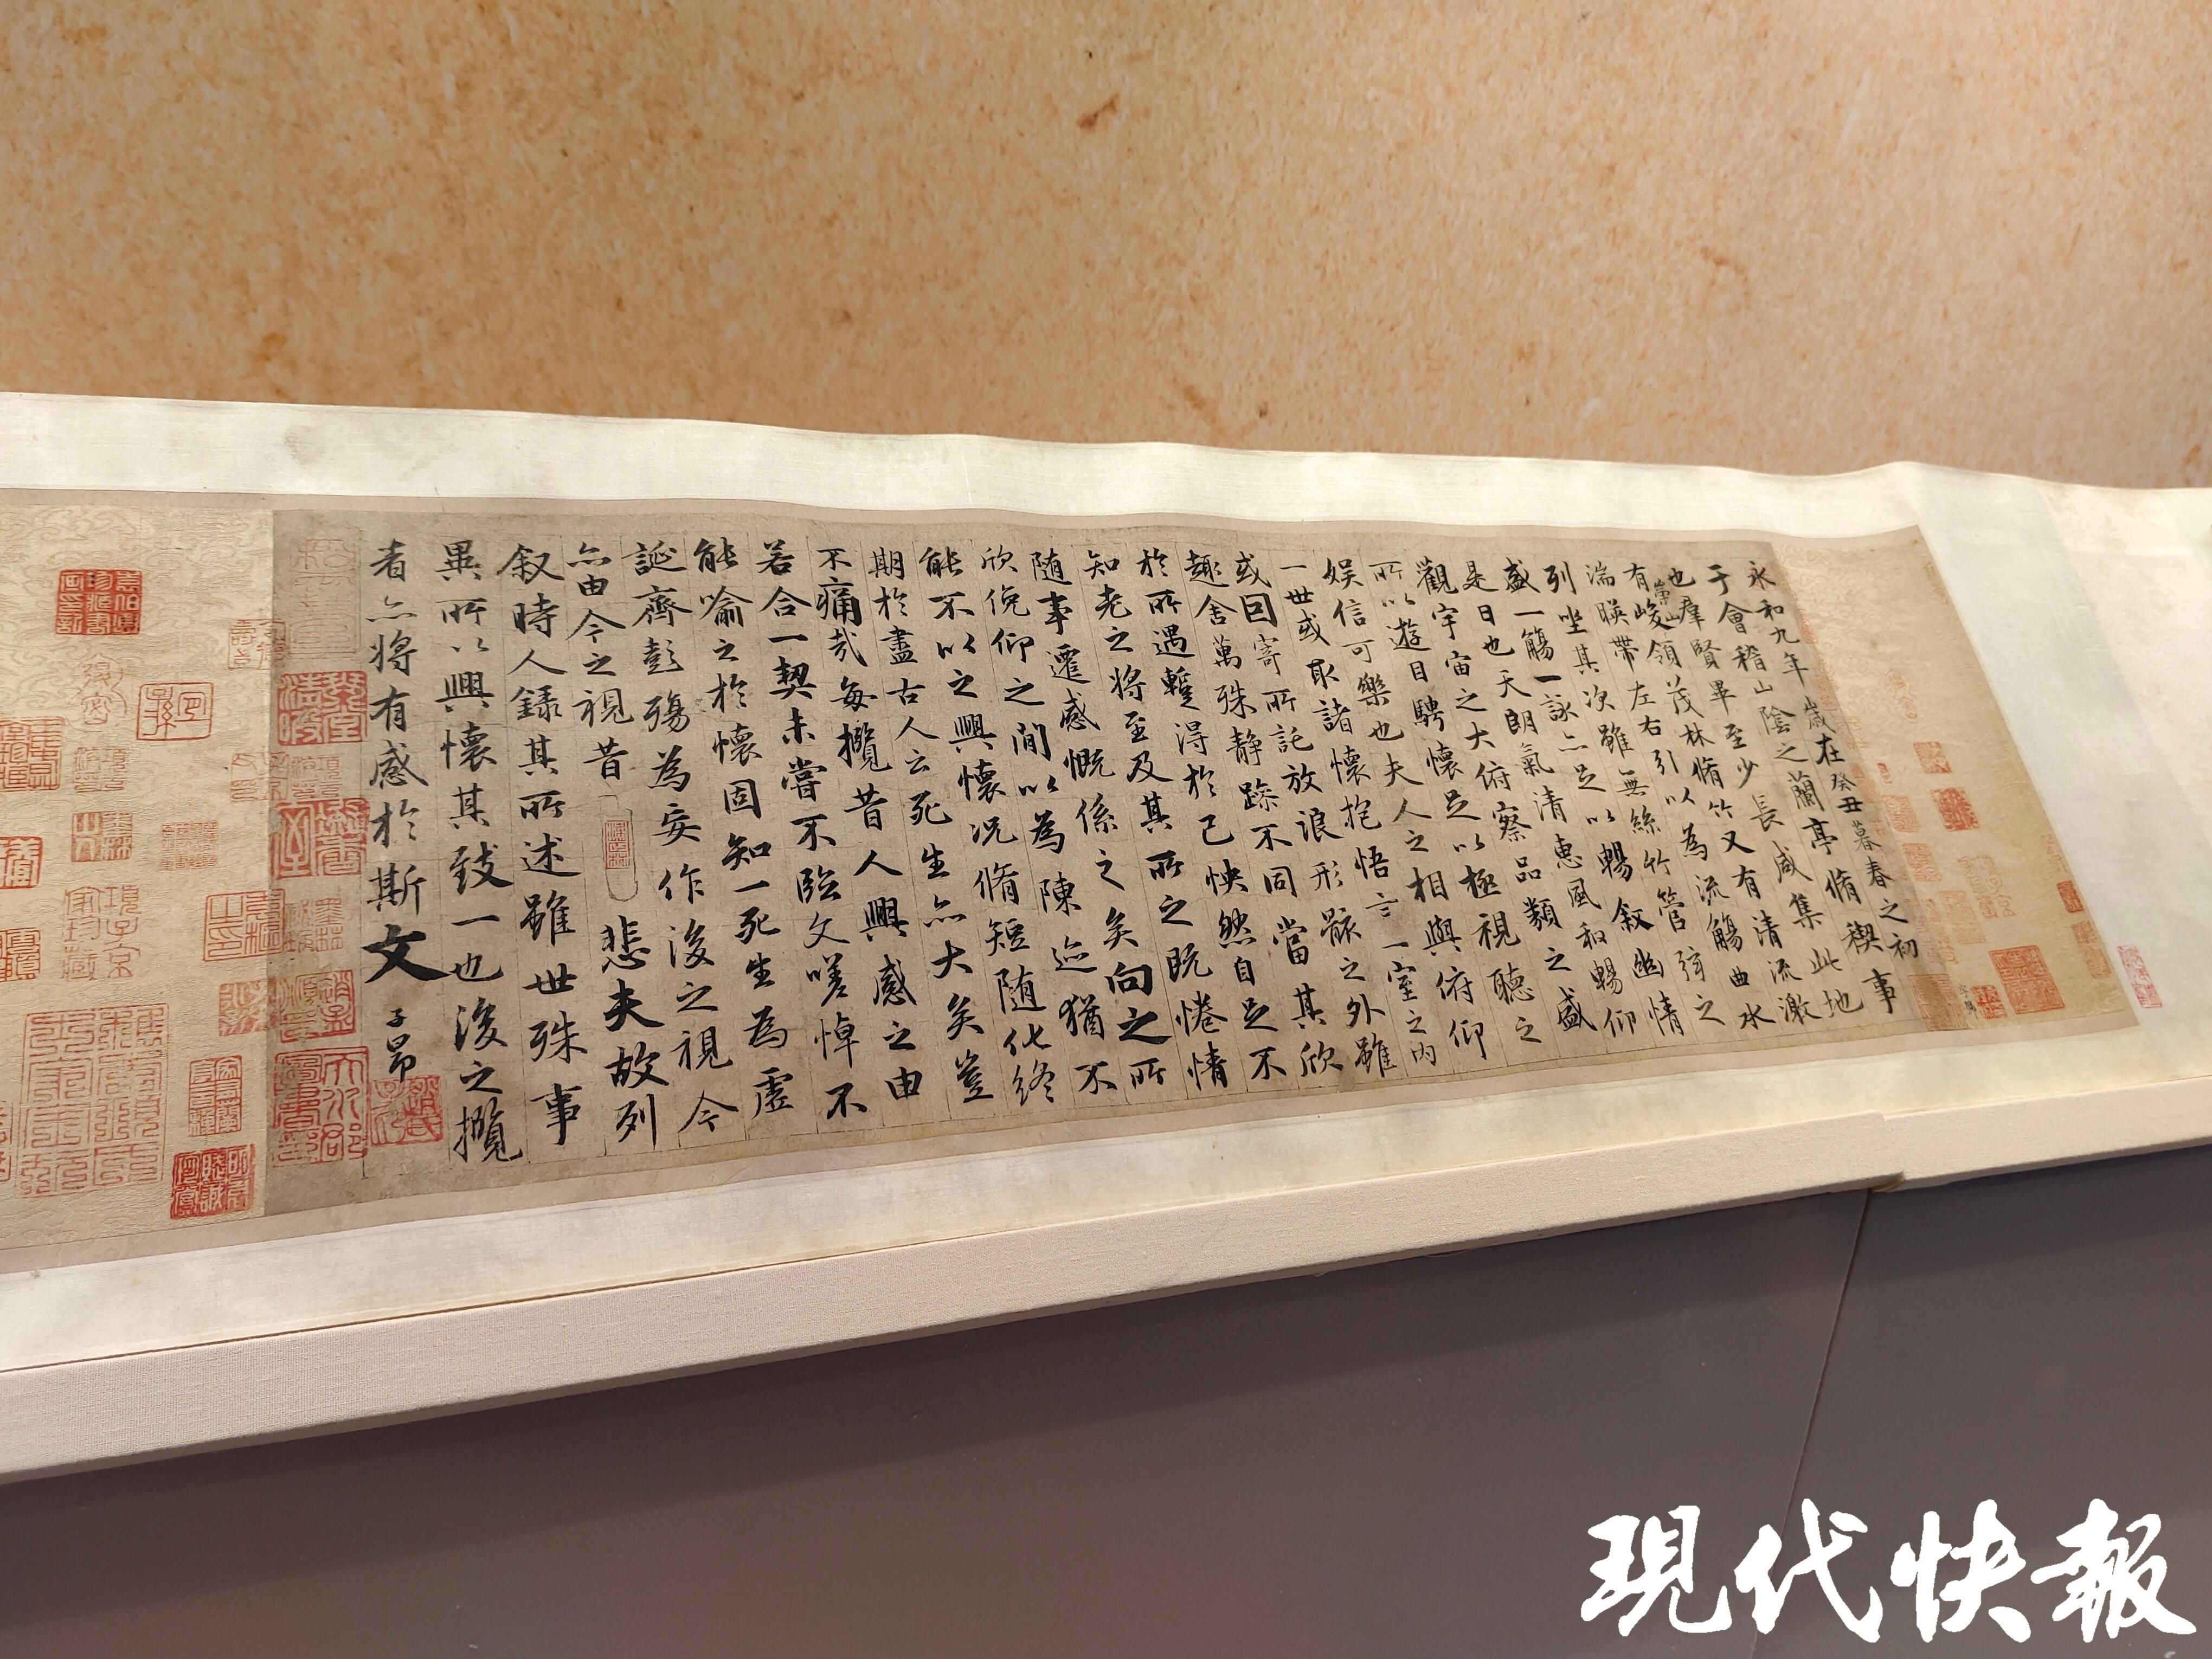 永和九年歲在癸丑暮春之初
于會稽山陰之蘭亭脩稧事
也羣賢畢至少長咸集此地
有崇山峻領茂林脩竹又有清流激
湍暎帶左右引以為流觴曲水
列坐其次雖無絲竹管弦之
盛一觴一詠亦足以暢叙幽情
是日也天朗氣清惠風和暢仰
觀宇宙之大俯察品類之盛
所以遊目騁懷足以極視聽之
娱信可樂也夫人之相與俯仰
一世或取諸懷抱悟言一室之內
或因寄所託放浪形骸之外雖
趣舍萬殊静躁不同當其欣
於所遇蹔得於己怏然自足不
知老之將至及其所之既惓情
随事遷感慨係之矣向之所
欣俛仰之間以為陳迹猶不
能不以之興懷况脩短随化終
期於盡古人云死生亦大矣豈
不痛哉每攬昔人興感之由
若合一契未嘗不臨文嗟悼不
能喻之於懷固知一死生為虛
誕齊彭殤為妄作後之視今
亦由今之視昔 悲夫故列
叙時人録其所述雖世殊事
異所以興懷其致一也後之攬
者亦將有感於斯文 子昂
項子京
家珍藏
現代快報